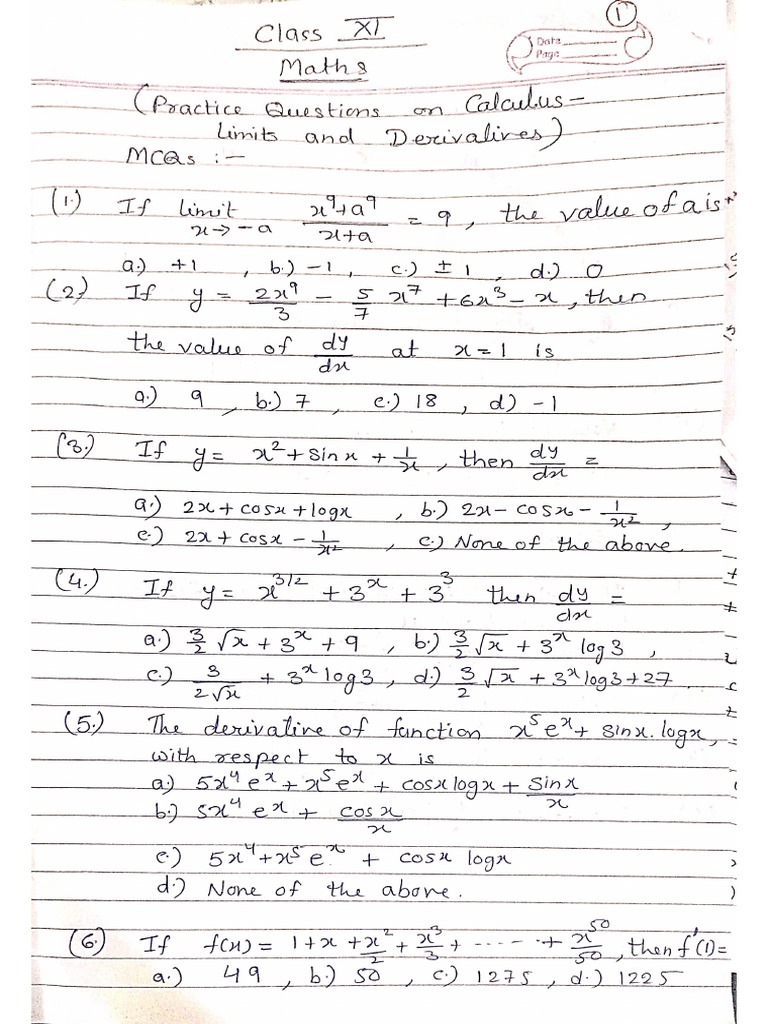 1
Class XI
Date
Page
Maths
(Practice Questions on Calculus -
Limits and Derivatives)
MCQs :-
(1.) If limit x→-a (x⁹+a⁹)/(x+a) = 9, the value of a is
a.) +1 , b.) -1, c.) ±1, d.) 0
(2.) If y = 2x⁹/3 - 5/7 x⁷ + 6x³ - x, then
the value of dy/dx at x=1 is
a.) 9 , b.) 7 , c.) 18 , d.) -1
(3.) If y = x² + sinx + 1/x, then dy/dx =
a.) 2x + cosx + logx , b.) 2x - cosx - 1/x² ,
c.) 2x + cosx - 1/x² , c.) None of the above.
(4.) If y = x^3/2 + 3^x + 3³ then dy/dx =
a.) 3/2 √x + 3^x + 9 , b.) 3/2 √x + 3^x log 3 ,
c.) 3/(2√x) + 3^x log 3 , d.) 3/2 √x + 3^x log3 + 27
(5.) The derivative of function x⁵e^x + sinx.logx,
with respect to x is
a.) 5x⁴e^x + x⁵e^x + cosx logx + sinx/x
b.) 5x⁴ e^x + cosx/x
c.) 5x⁴ + x⁵ e^x + cosx logx
d.) None of the above.
(6.) If f(x) = 1 + x + x²/2 + x³/3 + ...... + x⁵⁰/50, then f'(1) =
a.) 49 , b.) 50 , c.) 1275 , d.) 1225